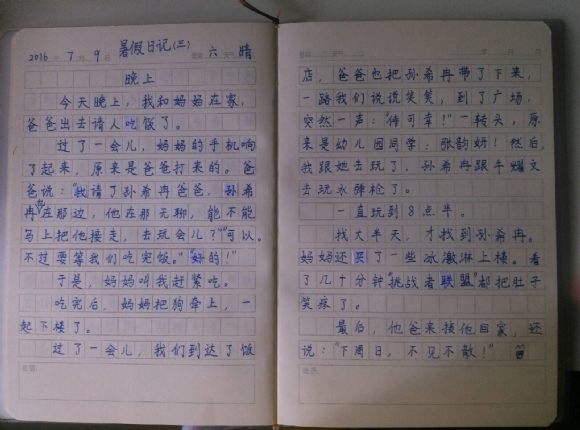 暑假日记(三)
2016年7月9日 星期六 天气晴
晚上
今天晚上，我和妈妈在家，
爸爸出去请人吃饭了。
过了一会儿，妈妈的手机响
了起来，原来是爸爸打来的。爸
爸说："我请了孙希冉爸爸，孙希
冉在那边，他在那无聊，能不能
马上把他接走，去玩会儿？""可以。
不过要等我们吃完饭。""好的！"
于是，妈妈叫我赶紧吃。
吃完后，妈妈把狗牵上，一
起下楼了。
过了一会儿，我们到达了饭
店，爸爸也把孙希冉带了下来，
一路我们说说笑笑，到了广场，
突然一声："傅可幸！"一转头，原
来是幼儿园同学：张韵妍！然后，
我跟她去玩了，孙希冉跟牟耀文
去玩水弹枪了。
一直玩到8点半。
找大半天，才找到孙希冉。
妈妈还买了一些冰激淋上楼。看
了几十分钟"挑战者联盟"都把肚子
笑疼了。
最后，他爸来接他回家，还
说："下周日，不见不散！"